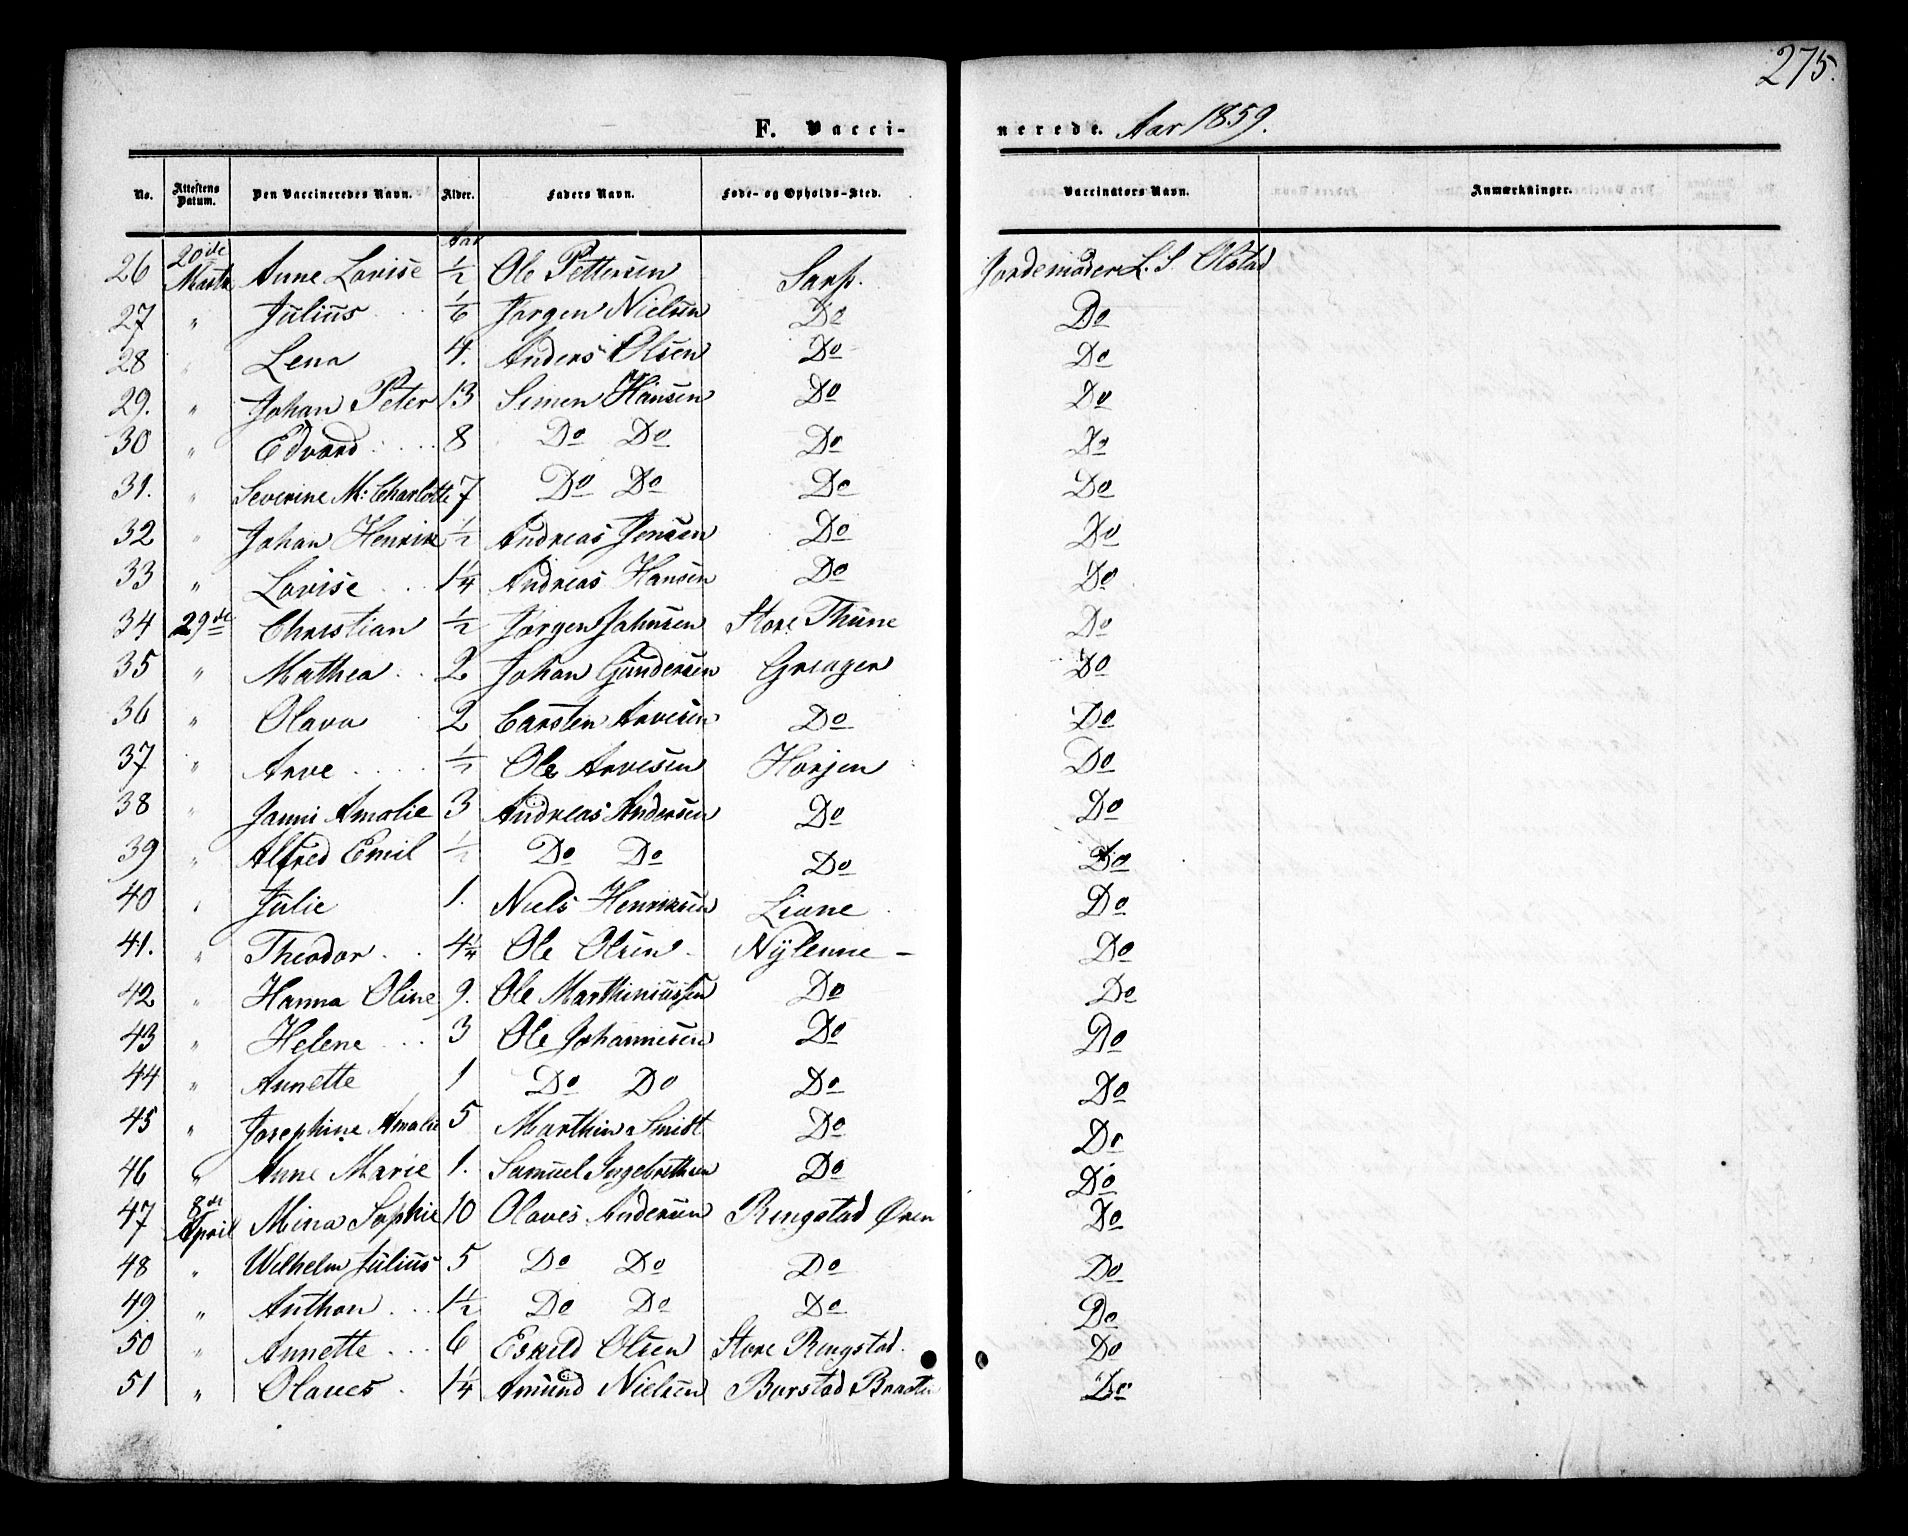 275.
F. Vaccinerede. Aar 1859.
No. Attestens Datum. Den Vaccineredes Navn. Alder. Faders Navn. Føde- og Opholds-Sted. Vaccinators Navn. Anmærkninger.
Aar
26 20de Marts Anne Lovise 1/2 Ole Pettersen Sarp. Jordemoder L. S. Olstad
27 " Julius 1/6 Jørgen Nielsen Do Do
28 " Lena 4. Anders Olsen Do Do
29. " Johan Peter 13 Simen Hansen Do Do
30 " Edvard 8 Do Do Do Do
31. " Severine M: Charlotte 7 Do Do Do Do
32 " Johan Henrik 1/2 Andreas Jensen Do Do
33 " Lovise 1 1/4 Andreas Hansen Do Do
34 29de Christian 1/2 Jørgen Johnsen Store Thune Do
35 " Mathea 2 Johan Gundersen Greager Do
36 " Olava 2 Carsten Arvesen Do Do
37 " Arve 1/2 Ole Arvesen Horjen Do
38 " Janni Amalie 3 Andreas Andersen Do Do
39 " Alfred Emil 1/2 Do Do Do Do
40 " Julie 1. Niels Henriksen Liane Do
41. " Theodor 4 1/4 Ole Olsen Nÿlenne Do
42 " Hanna Oline 9. Ole Marthiniussen Do Do
43 " Helene 3 Ole Johannesen Do Do
44 " Annette 1 Do Do Do Do
45 " Josephine Amalie 5 Marthin Smidt Do Do
46 " Anne Marie 1. Samuel Ingebrethsen Do Do
47 8de April Mina Sophie 10 Olaves Andersen Ringstad Øren Do
48 " Wilhelm Julius 5 Do Do Do Do
49. " Anthon 1 1/2 Do Do Do Do
50 " Annette 6 Eskild Olsen Store Ringstad. Do
51 " Olaves 1 1/4 Amund Nielsen Burstad Do